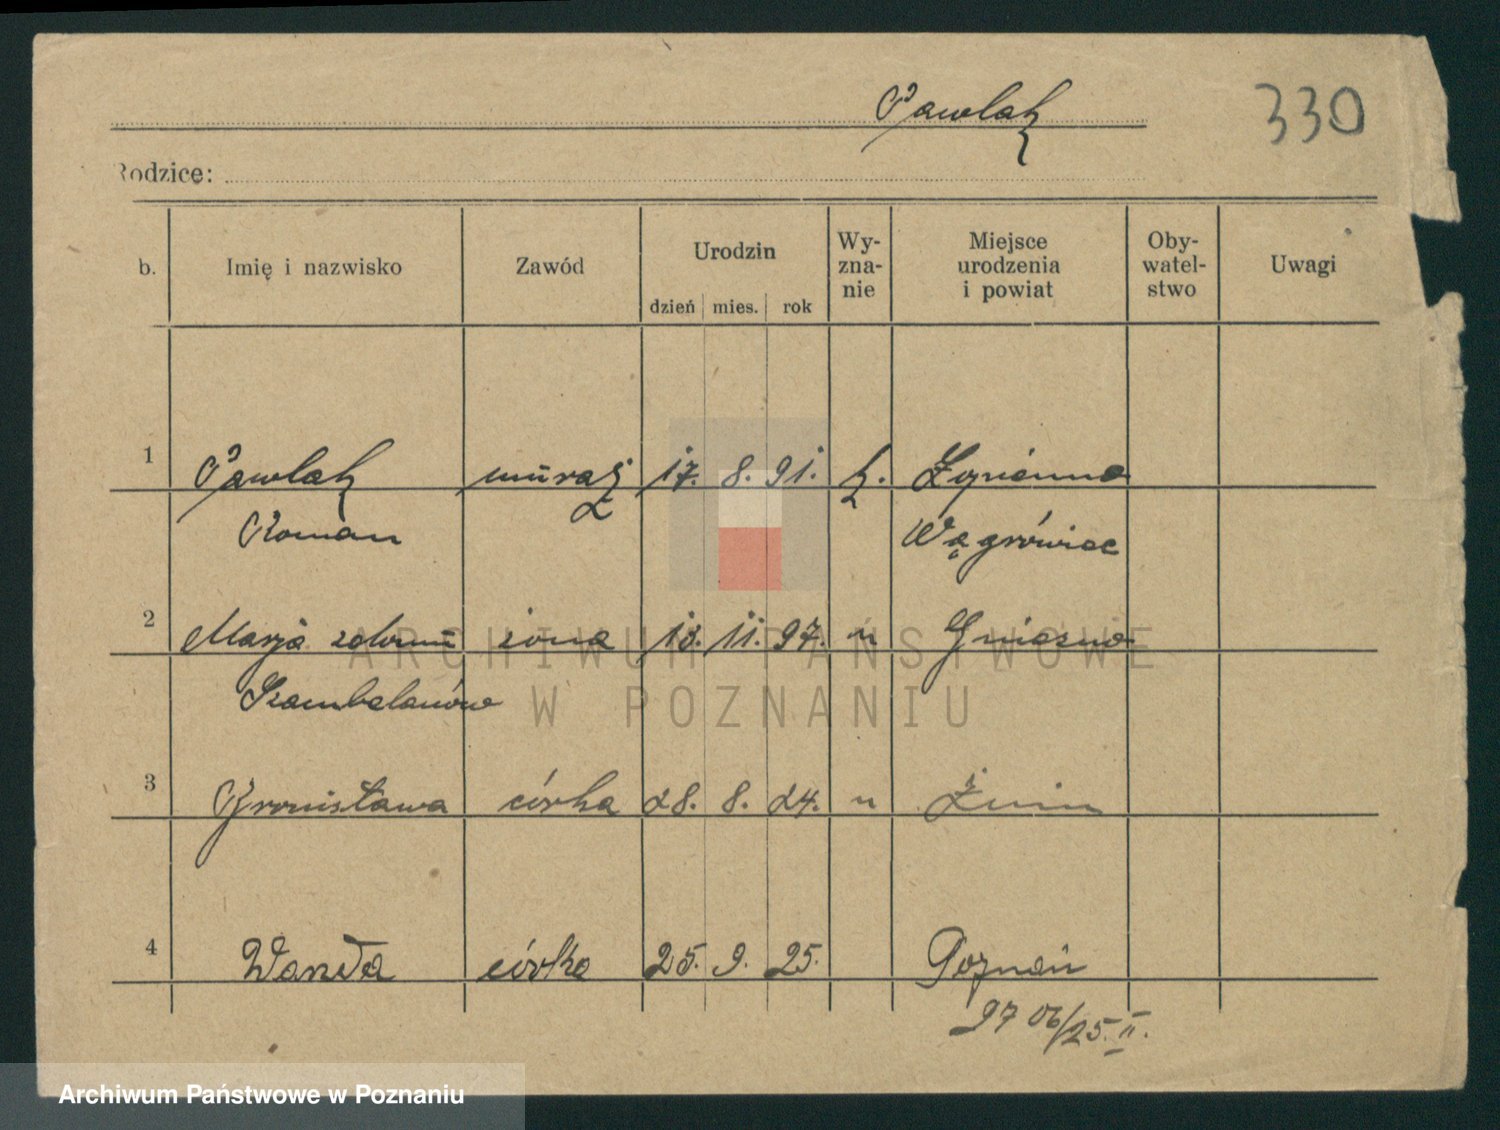 Pawlak
330
Rodzice:
b. Imię i nazwisko Zawód Urodzin dzień mies. rok Wy-zna-nie Miejsce urodzenia i powiat Oby-watel-stwo Uwagi
1 Pawlak murarz 17. 8. 91. k.
Roman Wągrówiec
2 Marja żona 18. 11. 97. " Gniezno
Szambelanówna
3 Bronisława córka 28. 8. 24. " Żnin
4 Wanda córka 25. 9. 25. Poznań
2706/25. II.
ARCHIWUM PAŃSTWOWE
W POZNANIU
Archiwum Państwowe w Poznaniu